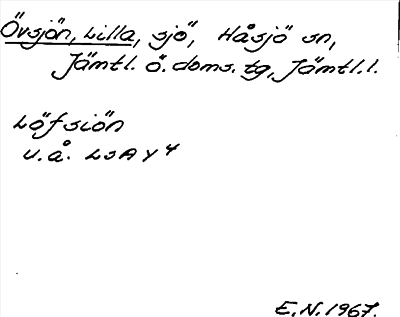 Övsjön, Lilla, sjö, Håsjö sn,
Jämtl. ö. doms. tg, Jämtl. l.
Löfsiön
u.å. LSA Y 4
E.N. 1967.